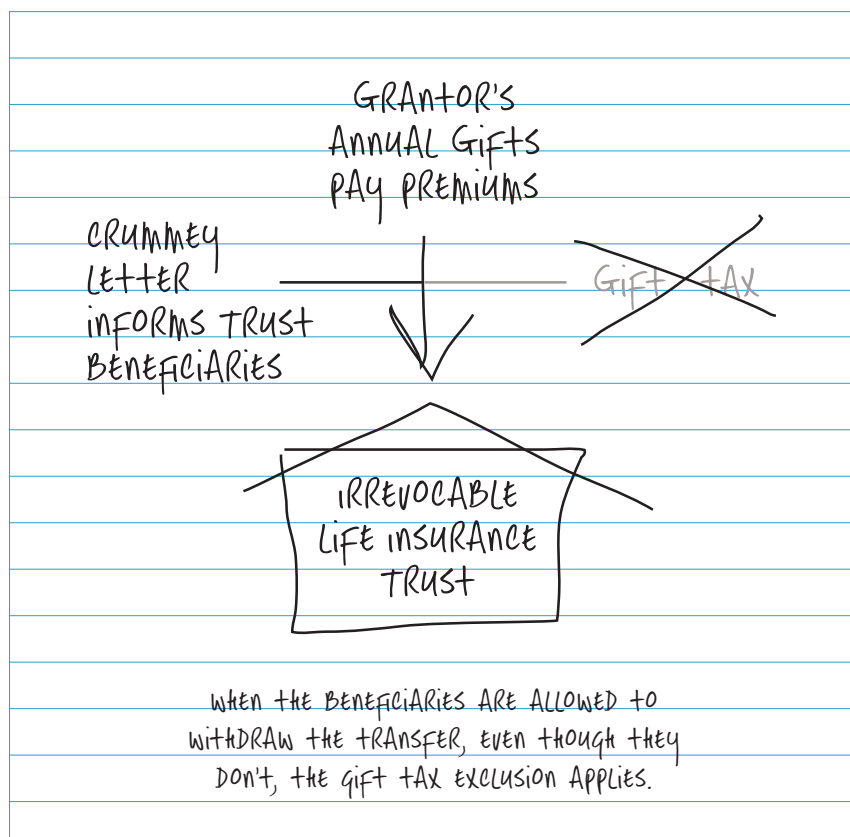 GRANTOR'S
ANNUAL GIFTS
PAY PREMIUMS
CRUMMEY
LETTER
INFORMS TRUST
BENEFICIARIES
GIFT TAX
IRREVOCABLE
LIFE INSURANCE
TRUST
WHEN THE BENEFICIARIES ARE ALLOWED TO
WITHDRAW THE TRANSFER, EVEN THOUGH THEY
DON'T, THE GIFT TAX EXCLUSION APPLIES.